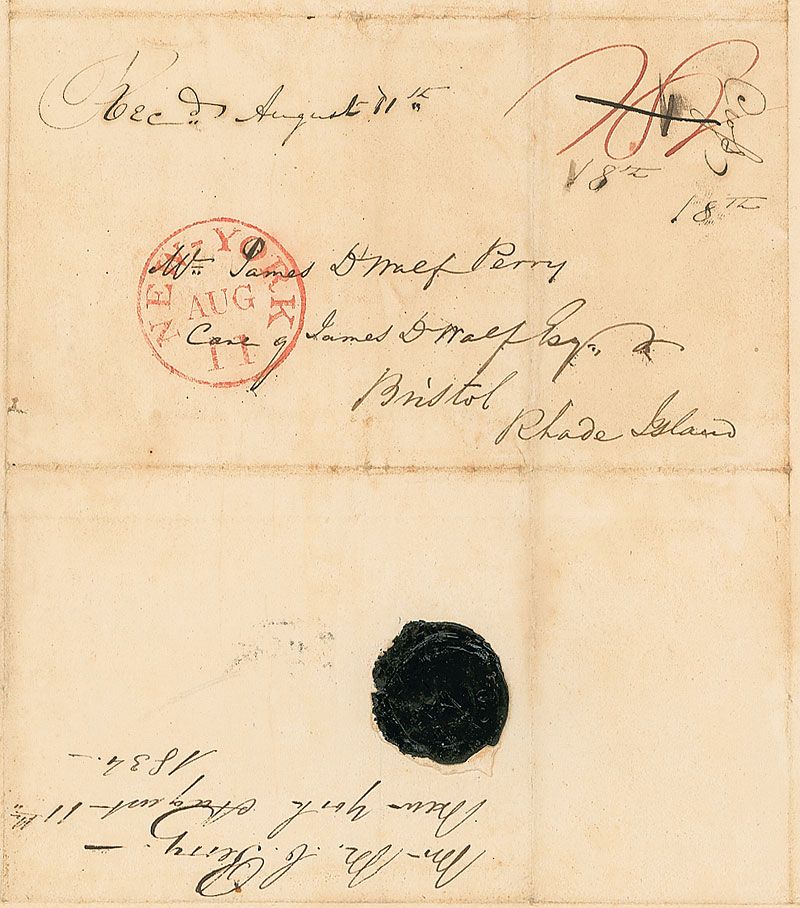 Rec.d August 11th
18th
18th
NEW-YORK
AUG
11
Mr. James D'Wolf Perry
Care of James D'Wolf Esq.
Bristol
Rhode Island
Mr. M. C. Perry.—
New York August 11th
1834.—